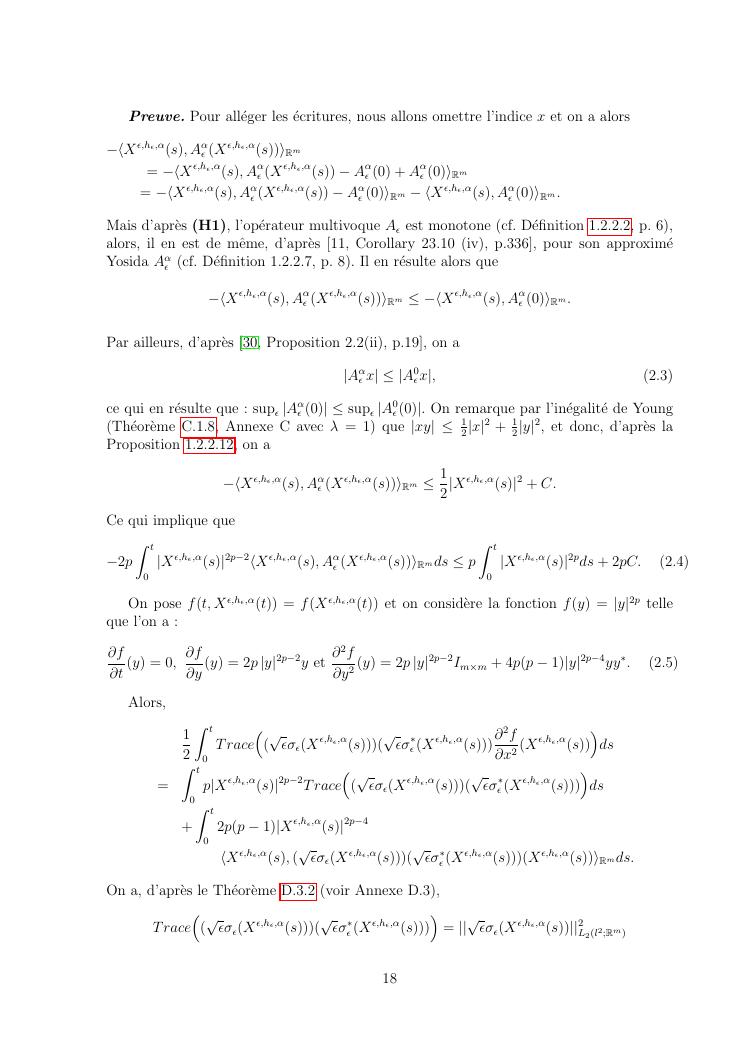 Preuve. Pour alléger les écritures, nous allons omettre l'indice x et on a alors
−⟨X^{ϵ,h_ϵ,α}(s), A_ϵ^α(X^{ϵ,h_ϵ,α}(s))⟩_{ℝ^m}
= −⟨X^{ϵ,h_ϵ,α}(s), A_ϵ^α(X^{ϵ,h_ϵ,α}(s)) − A_ϵ^α(0) + A_ϵ^α(0)⟩_{ℝ^m}
= −⟨X^{ϵ,h_ϵ,α}(s), A_ϵ^α(X^{ϵ,h_ϵ,α}(s)) − A_ϵ^α(0)⟩_{ℝ^m} − ⟨X^{ϵ,h_ϵ,α}(s), A_ϵ^α(0)⟩_{ℝ^m}.
Mais d'après (H1), l'opérateur multivoque A_ϵ est monotone (cf. Définition 1.2.2.2, p. 6),
alors, il en est de même, d'après [11, Corollary 23.10 (iv), p.336], pour son approximé
Yosida A_ϵ^α (cf. Définition 1.2.2.7, p. 8). Il en résulte alors que
−⟨X^{ϵ,h_ϵ,α}(s), A_ϵ^α(X^{ϵ,h_ϵ,α}(s))⟩_{ℝ^m} ≤ −⟨X^{ϵ,h_ϵ,α}(s), A_ϵ^α(0)⟩_{ℝ^m}.
Par ailleurs, d'après [30, Proposition 2.2(ii), p.19], on a
|A_ϵ^α x| ≤ |A_ϵ^0 x|, (2.3)
ce qui en résulte que : sup_ϵ |A_ϵ^α(0)| ≤ sup_ϵ |A_ϵ^0(0)|. On remarque par l'inégalité de Young
(Théorème C.1.8, Annexe C avec λ = 1) que |xy| ≤ \frac{1}{2}|x|^2 + \frac{1}{2}|y|^2, et donc, d'après la
Proposition 1.2.2.12, on a
−⟨X^{ϵ,h_ϵ,α}(s), A_ϵ^α(X^{ϵ,h_ϵ,α}(s))⟩_{ℝ^m} ≤ \frac{1}{2}|X^{ϵ,h_ϵ,α}(s)|^2 + C.
Ce qui implique que
−2p ∫_0^t |X^{ϵ,h_ϵ,α}(s)|^{2p−2}⟨X^{ϵ,h_ϵ,α}(s), A_ϵ^α(X^{ϵ,h_ϵ,α}(s))⟩_{ℝ^m} ds ≤ p ∫_0^t |X^{ϵ,h_ϵ,α}(s)|^{2p} ds + 2pC. (2.4)
On pose f(t, X^{ϵ,h_ϵ,α}(t)) = f(X^{ϵ,h_ϵ,α}(t)) et on considère la fonction f(y) = |y|^{2p} telle
que l'on a :
\frac{∂f}{∂t}(y) = 0, \frac{∂f}{∂y}(y) = 2p |y|^{2p−2}y et \frac{∂^2f}{∂y^2}(y) = 2p |y|^{2p−2}I_{m×m} + 4p(p − 1)|y|^{2p−4}yy^*. (2.5)
Alors,
\frac{1}{2} ∫_0^t Trace((√ϵσ_ϵ(X^{ϵ,h_ϵ,α}(s)))(√ϵσ_ϵ^*(X^{ϵ,h_ϵ,α}(s)))\frac{∂^2f}{∂x^2}(X^{ϵ,h_ϵ,α}(s)))ds
= ∫_0^t p|X^{ϵ,h_ϵ,α}(s)|^{2p−2}Trace((√ϵσ_ϵ(X^{ϵ,h_ϵ,α}(s)))(√ϵσ_ϵ^*(X^{ϵ,h_ϵ,α}(s))))ds
+ ∫_0^t 2p(p − 1)|X^{ϵ,h_ϵ,α}(s)|^{2p−4}
⟨X^{ϵ,h_ϵ,α}(s), (√ϵσ_ϵ(X^{ϵ,h_ϵ,α}(s)))(√ϵσ_ϵ^*(X^{ϵ,h_ϵ,α}(s)))(X^{ϵ,h_ϵ,α}(s))⟩_{ℝ^m} ds.
On a, d'après le Théorème D.3.2 (voir Annexe D.3),
Trace((√ϵσ_ϵ(X^{ϵ,h_ϵ,α}(s)))(√ϵσ_ϵ^*(X^{ϵ,h_ϵ,α}(s)))) = ||√ϵσ_ϵ(X^{ϵ,h_ϵ,α}(s))||^2_{L_2(l^2;ℝ^m)}
18